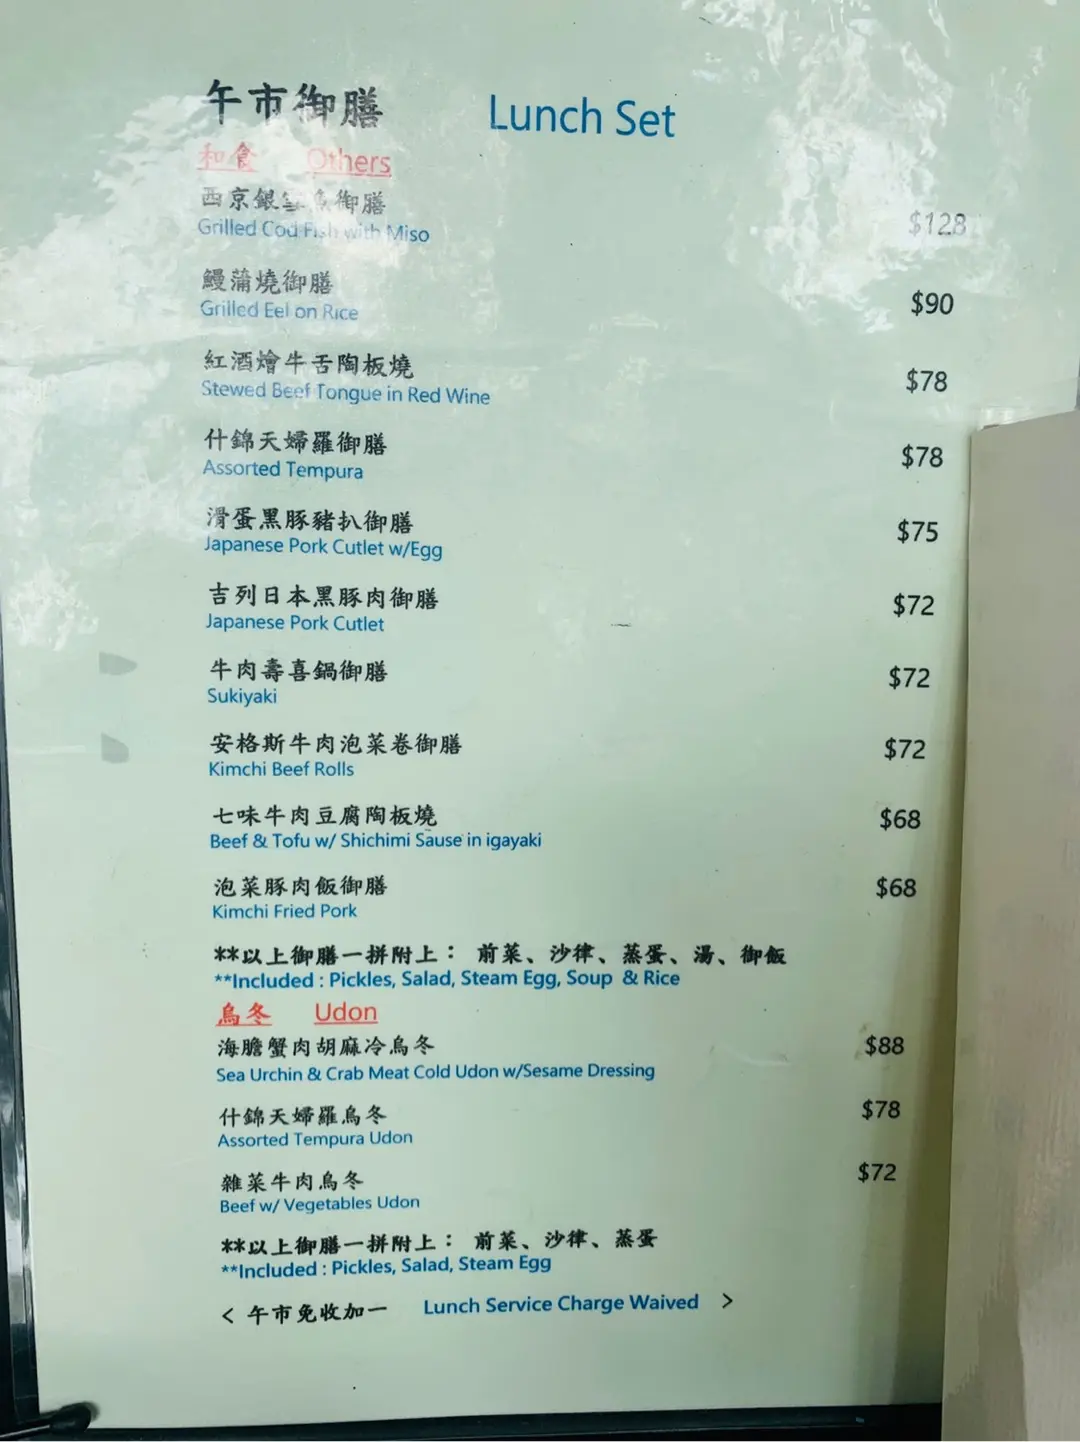 午市御膳 Lunch Set
和食 Others
西京銀雪魚御膳
Grilled Cod Fish with Miso $128
鰻蒲燒御膳
Grilled Eel on Rice $90
紅酒燴牛舌陶板燒
Stewed Beef Tongue in Red Wine $78
什錦天婦羅御膳
Assorted Tempura $78
滑蛋黑豚豬扒御膳
Japanese Pork Cutlet w/Egg $75
吉列日本黑豚肉御膳
Japanese Pork Cutlet $72
牛肉壽喜鍋御膳
Sukiyaki $72
安格斯牛肉泡菜卷御膳
Kimchi Beef Rolls $72
七味牛肉豆腐陶板燒
Beef & Tofu w/ Shichimi Sause in igayaki $68
泡菜豚肉飯御膳
Kimchi Fried Pork $68
**以上御膳一拼附上： 前菜、沙律、蒸蛋、湯、御飯
**Included : Pickles, Salad, Steam Egg, Soup & Rice
烏冬 Udon
海膽蟹肉胡麻冷烏冬 $88
Sea Urchin & Crab Meat Cold Udon w/Sesame Dressing
什錦天婦羅烏冬 $78
Assorted Tempura Udon
雜菜牛肉烏冬 $72
Beef w/ Vegetables Udon
**以上御膳一拼附上： 前菜、沙律、蒸蛋
**Included : Pickles, Salad, Steam Egg
< 午市免收加一 Lunch Service Charge Waived >